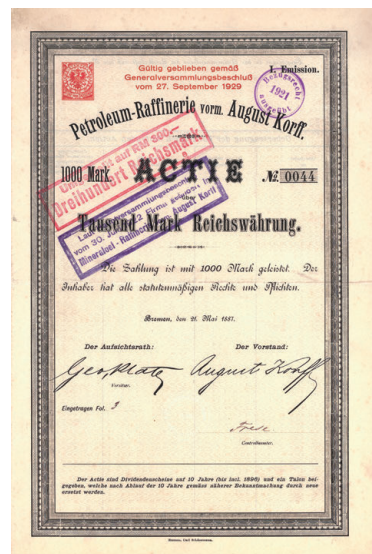 Gültig geblieben gemäß
Generalversammlungsbeschluß
vom 27. September 1929
I. Emission.
Bezugsrecht
1921
ausgeübt
Petroleum-Raffinerie vorm. August Korff.
Umgestellt auf RM 300.-
Dreihundert Reichsmark
1000 Mark
ACTIE
№ 0044
über
Laut Generalversammlungsbeschluss
vom 30. Firma geändert in
Mineraloel-Raffinerie vorm. August Korff
Tausend Mark Reichswährung.
Die Zahlung ist mit 1000 Mark geleistet. Der
Inhaber hat alle statutenmäßigen Rechte und Pflichten.
Bremen, den 21. Mai 1887.
Der Aufsichtsrath:
Der Vorstand:
Geo Plate
August Korff
Vorsitzer.
Eingetragen Fol. 3
Frese
Controlbeamter.
Der Actie sind Dividendenscheine auf 10 Jahre (bis incl. 1896) und ein Talon bei-
gegeben, welche nach Ablauf der 10 Jahre gemäss näherer Bekanntmachung durch neue
ersetzt werden.
Bremen, Carl Schünemann.